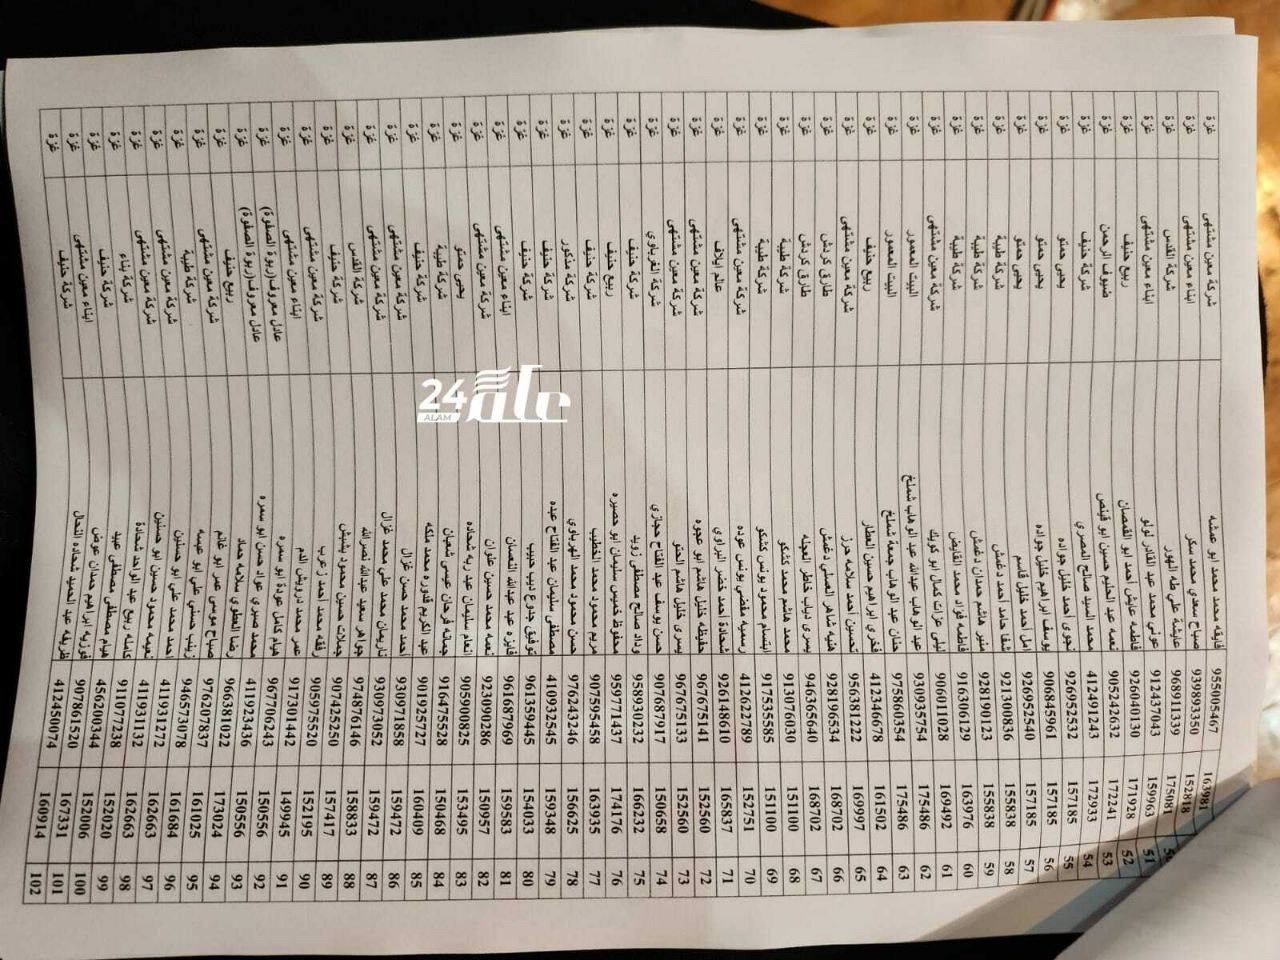 163981 955055467 فايقه محمد محمد ابو عضه شركة معين مشتهى غزة
152818 939893550 صباح سعدي محمد سكر ابناء معين مشتهى غزة
50 175081 968911339 عايشة علي طه الهور شركة القدس غزة
51 159963 912437043 عوني محمد عبد القادر لولو ابناء معين مشتهى غزة
52 171928 926040130 فاطمه عايش احمد ابو القمصان ربيع حنيف غزة
53 172241 905242632 نعمه عبد الحليم حسين ابو قينص ضيوف الرحمن غزة
54 172933 412491243 محمد السيد صالح المصري شركة حنيف غزة
55 157185 926952532 نجوى احمد خليل جواده يحيى حمتو غزة
56 157185 906845961 يوسف ابراهيم خليل جواده يحيى حمتو غزة
57 157185 926952540 امل احمد خليل قاسم يحيى حمتو غزة
58 155838 921300836 شفا حامد احمد دغمش شركة طيبة غزة
59 155838 928190123 منير هاشم حمدان دغمش شركة طيبة غزة
60 163976 916306129 فاطمه فؤاد محمد القايض شركة طيبة غزة
61 169492 906011028 ليلى عزات كمال ابو كويك شركة معين مشتهى غزة
62 175486 930935757 عبد الوهاب عبدالله عبد الوهاب شملخ البيت المعمور غزة
63 175486 975860354 حنان عبد الوهاب جمعة شملخ البيت المعمور غزة
64 161502 412346678 فخري ابراهيم حسين العطار ربيع حنيف غزة
65 169997 956381222 تحسين احمد سلامه حرز شركة معين مشتهى غزة
66 168702 928196534 هنيه شاهر العسلي دغمش طارق كردش غزة
67 168702 946365640 يسرى دياب خاطر العجله طارق كردش غزة
68 151100 913076030 محمد هاشم محمد كشكو شركة طيبة غزة
69 151100 917535585 ابتسام محمود يونس كشكو شركة طيبة غزة
70 152751 412622789 رسميه مفضي يونس عوده شركة معين مشتهى غزة
71 165837 926148610 شحادة احمد خضر البراوي عالم ايلاف غزة
72 152560 967675141 حفيظه خليل هاشم ابو عجوه شركة معين مشتهى غزة
73 152560 967675133 يسرى خليل هاشم الحتو شركة معين مشتهى غزة
74 150658 907687917 حسن يوسف عبد الفتاح حجازي شركة الغرباوي غزة
75 166232 958930232 وداد صالح مصطفى زويد شركة حنيف غزة
76 174176 959771437 محفوظ خميس سليمان ابو حصيره ربيع حنيف غزة
77 163935 907595458 مريم محمود محمد الخطيب شركة حنيف غزة
78 156625 976243246 حسن محمود محمد الهرباوي شركة مدكور غزة
79 159348 410932545 مصطفى سليمان عبد الفتاح عبده شركة حنيف غزة
80 154033 961359445 توفيق جدوع ديب حبيب شركة حنيف غزة
81 159583 961687969 فايزه عبد عبدالله التعسان ابناء معين مشتهى غزة
82 150957 923090286 نعمه محمد حسين علوان شركة معين مشتهى غزة
83 153495 905900825 انعام سليمان عبد ربه شحاده يحيى حمتو غزة
84 150468 916475528 جمالات فرحان عيسى شعبان شركة طيبة غزة
85 160409 901925727 عبد الكريم قدوره محمد ملكه شركة حنيف غزة
86 159472 930971858 احمد محمد حسن غزال شركة معين مشتهى غزة
87 159472 930973052 ناريمان محمد علي محمد غزال شركة معين مشتهى غزة
88 158833 974876146 جواهر سعيد عبدالله نصرالله شركة القدس غزة
89 157417 907425250 جملات حسين محمود بشبش شركة حنيف غزة
90 152195 905975520 رفقه محمد احمد زعرب شركة معين مشتهى غزة
91 149945 917301442 عمر محمد درويش الدم ابناء معين مشتهى غزة
92 150556 967706243 هيام كامل عودة ابو سمره عادل معروف(ربوة الصفوة) غزة
93 150556 411923436 محمد صبري عواد حسن ابو سمره عادل معروف(ربوة الصفوة) غزة
94 173024 966381022 رضا العطوي سلامه حماد ربيع حنيف غزة
95 161025 976207837 صباح موسى عمر ابو غانم شركة معين مشتهى غزة
96 161684 946573078 زينب حسني علي ابو عبسه شركة طيبة غزة
97 162663 411931272 احمد محمد علي ابو حسنين شركة معين مشتهى غزة
98 162663 411931132 نعيمه محمود حسين ابو حسنين شركة معين مشتهى غزة
99 152020 911077238 كامله ربيع عبد الواحد شحادة شركة بناء غزة
100 152006 456200344 هيام مصطفى مصطفى عبيد غزة
101 167331 907861520 فوزيه ابراهيم حمدان عوض ابناء معين مشتهى غزة
102 160914 412450074 ظريفه عبد الحميد شحاده النحال شركة حنيف غزة
عالم 24
ALAM